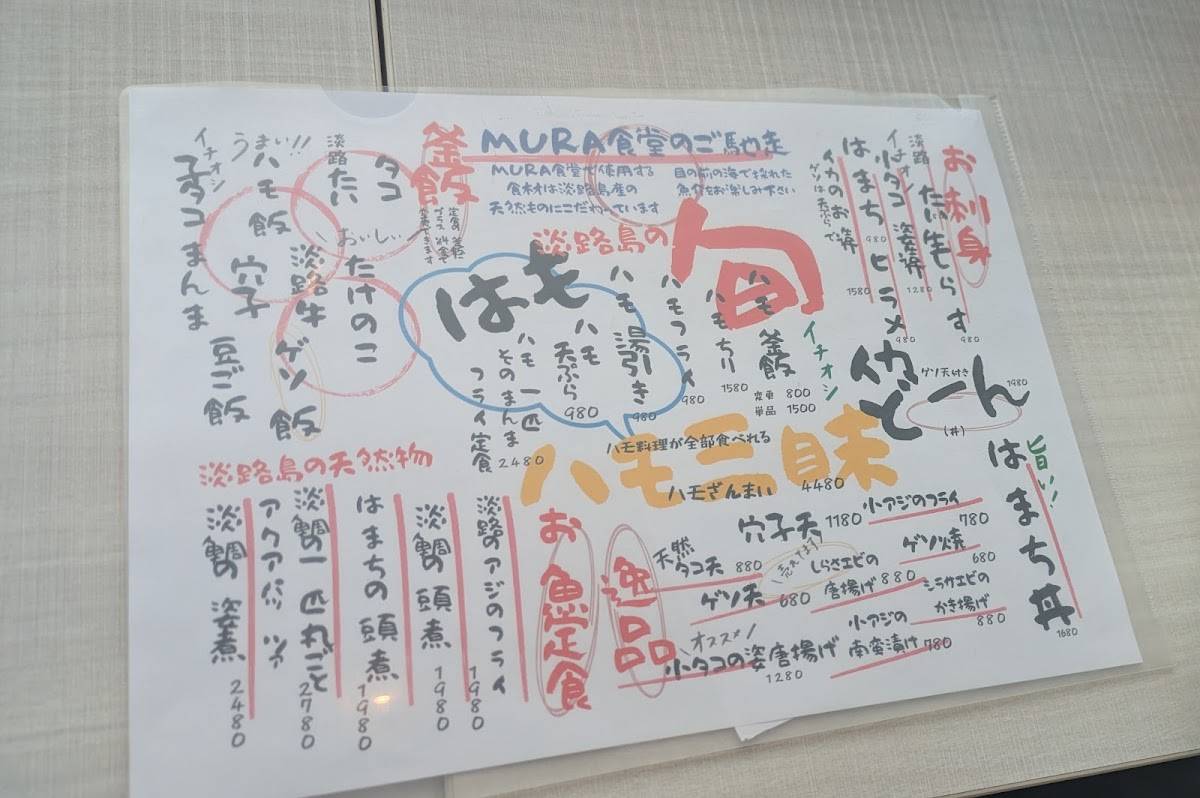 MURA食堂のご馳走
MURA食堂で使用する
食材は淡路島産の
天然ものにこだわっています
目の前の海で採れた
魚介をお楽しみ下さい
お刺身
淡路
たい 生しらす
980
イチオシ
小タコ 姿造
1280
はまち
980
ヒラメ
980
イカのお造
ゲソは天ぷらで
1580
淡路島の
旬
はも
イチオシ
ハモ釜飯
変更 800
単品 1500
ハモちり
1580
ハモフライ
980
ハモ湯引き
980
ハモ天ぷら
980
ハモ一匹
そのまんま
フライ定食
2480
ハモ料理が全部食べれる
ハモ三昧
ハモざんまい 4480
ゲソ天付き
どーん
(丼)
1980
旨い!
はまち丼
1680
釜飯
タコ
たけのこ
淡路
たい
おいしい
うまい!!
ハモ飯
淡路牛
ゲソ飯
穴子
豆ご飯
イチオシ
子タコまんま
逸品
穴子天 1180
天然
タコ天 880
ゲソ天 680
オススメ!
小タコの姿唐揚げ
1280
小アジのフライ
780
ゲソ焼
680
しらさエビの
唐揚げ 880
シラサエビの
かき揚げ
880
小アジの
南蛮漬け 780
お魚定食
淡路島の天然物
淡路のアジのフライ
1980
淡鯛の頭煮
1980
はまちの頭煮
1980
淡鯛の一匹丸ごと
アクアパッツァ
2780
淡鯛の姿煮
2480